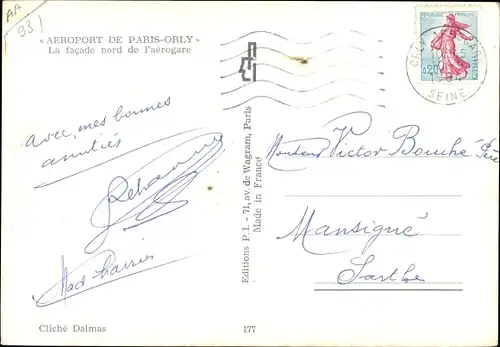 AA
931
«AEROPORT DE PARIS-ORLY»
La façade nord de l'aérogare
REPUBLIQUE FRANÇAISE
0,20
SEINE
avec mes bonnes
amitiés
Monsieur Victor Bouché Père
Mansigné
Sarthe
Editions P.I. - 71, av. de Wagram, Paris
Made in France
Cliché Dalmas
177